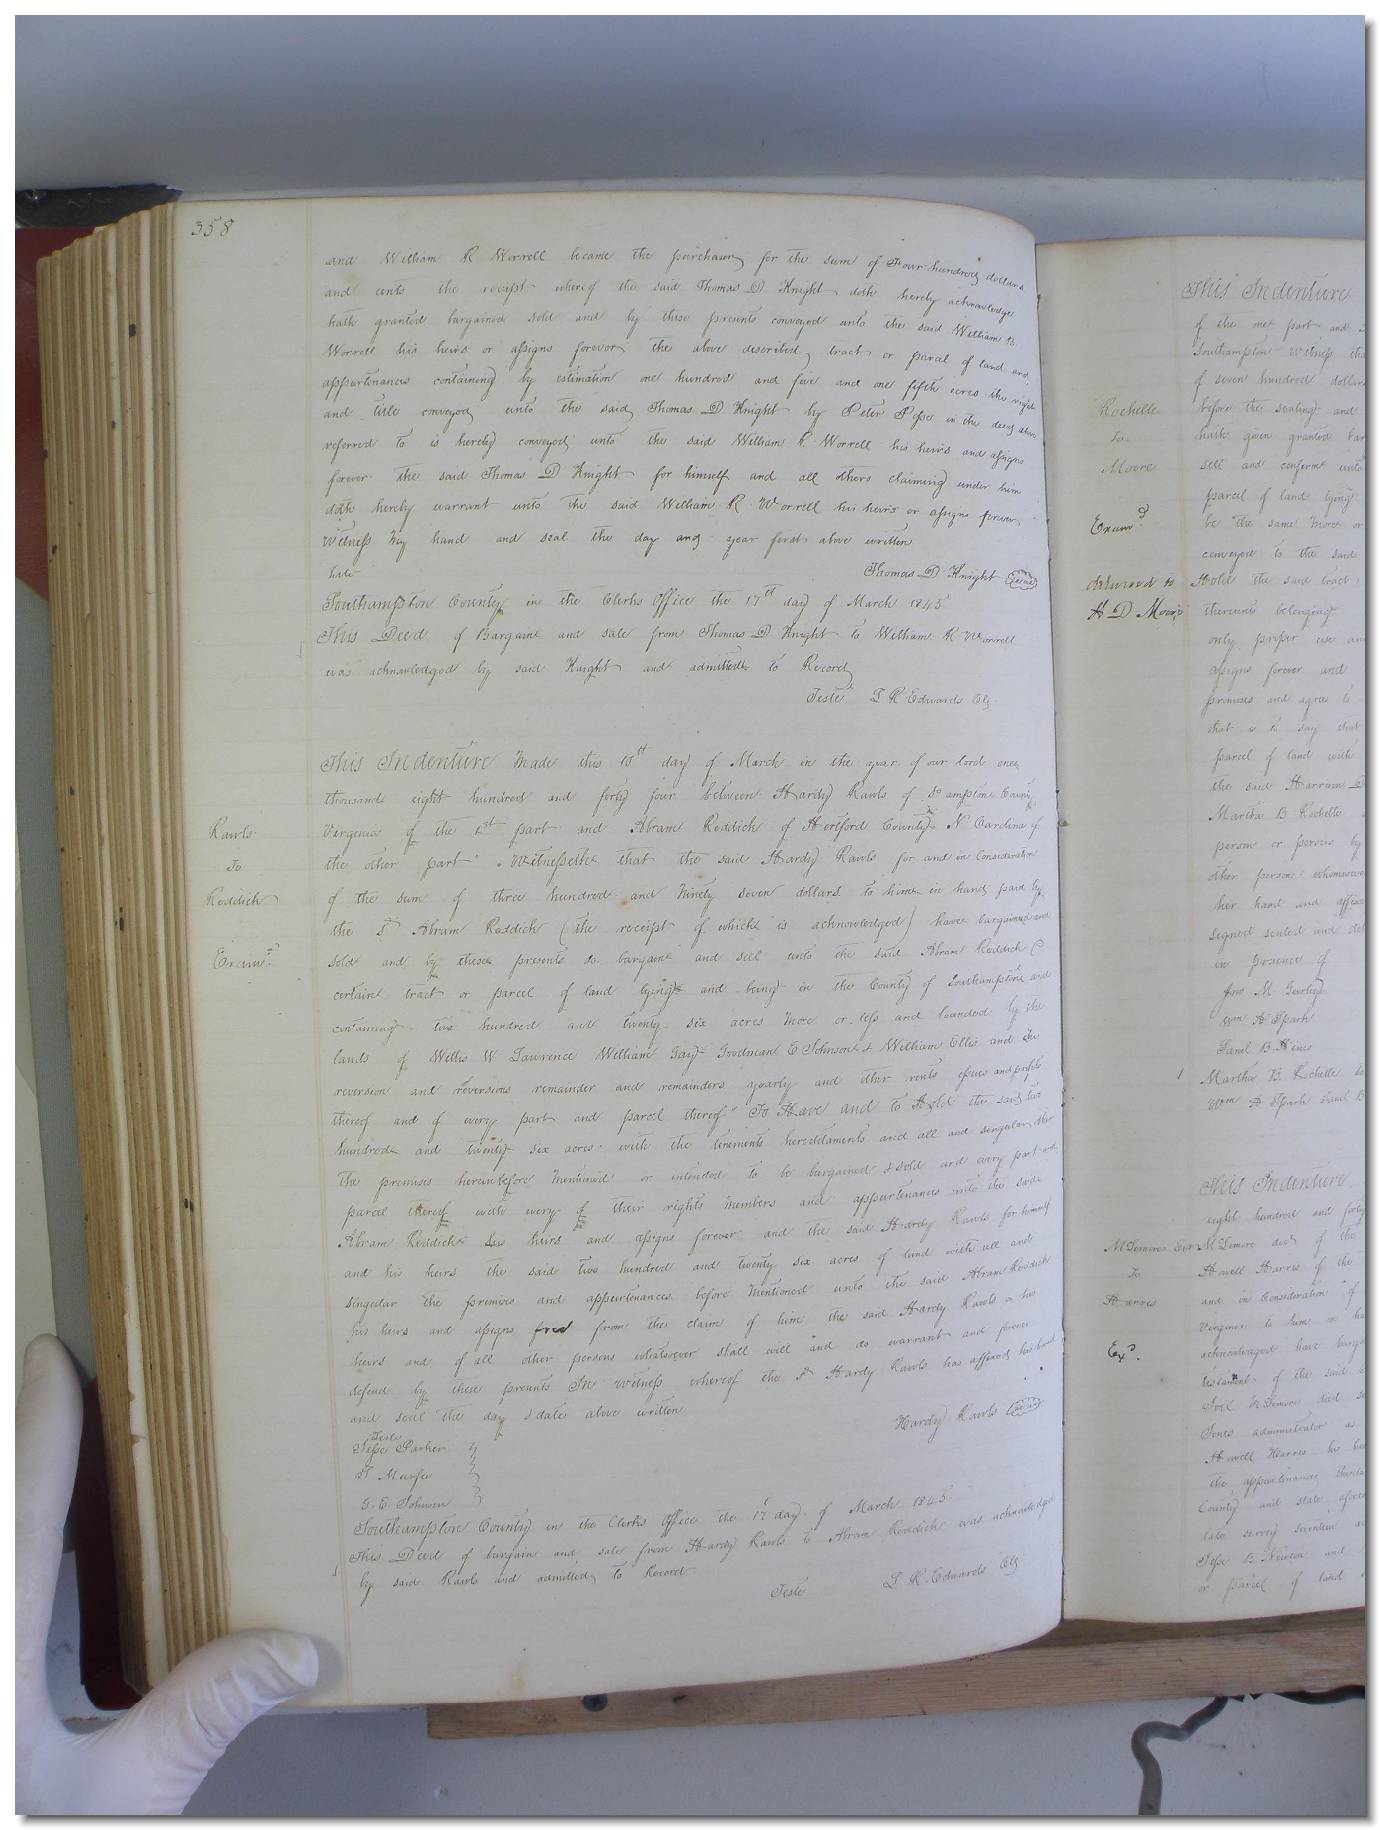 358
and William R Worrell became the purchaser for the sum of Four hundred dollars
and unto the receipt whereof the said Thomas D Knight doth hereby acknowledge
hath granted bargained sold and by these presents conveyed unto the said William R
Worrell his heirs or assigns forever the above described tract or parcel of land and
appurtenances containing by estimation one hundred and five and one fifth acres the right
and title conveyed unto the said Thomas D Knight by Peter Pope in the deed above
referred to is hereby conveyed unto the said William R Worrell his heirs and assigns
forever the said Thomas D Knight for himself and all others claiming under him
doth hereby warrant unto the said William R Worrell his heirs or assigns forever
Witness My hand and seal the day and year first above written
Thomas D Knight Seal
Southampton County in the Clerks Office the 17th day of March 1845
This Deed of Bargain and sale from Thomas D Knight to William R Worrell
was acknowledged by said Knight and admitted to Record
Teste L R Edwards Clk
This Indenture Made this 10th day of March in the year of our lord one
thousand eight hundred and forty four between Hardy Rawls of So ampton County
Virginia of the 1st part and Abram Reddick of Hertford County N Carolina of
the other part Witnesseth that the said Hardy Rawls for and in Consideration
of the sum of three hundred and Ninety seven dollars to him in hand paid by
the sd Abram Reddick (the receipt of which is acknowledged) have bargained and
sold and by these presents do bargain and sell unto the said Abram Reddick a
certain tract or parcel of land lying and being in the County of Southampton and
containing two hundred and twenty six acres More or less and bounded by the
lands of Willis W Lawrence William Gay Goodman E Johnson & William Ellis and the
reversion and reversions remainder and remainders yearly and other rents issues and profits
thereof and of every part and parcel thereof To Have and to Hold the said two
hundred and twenty six acres with the tenements hereditaments and all and singular other
the premises hereinbefore Mentioned or intended to be bargained & sold and every part and
parcel thereof with every of their rights Members and appurtenances unto the said
Abram Reddick his heirs and assigns forever and the said Hardy Rawls for himself
and his heirs the said two hundred and twenty six acres of land with all and
singular the premises and appurtenances before Mentioned unto the said Abram Reddick
his heirs and assigns free from the claim of him the said Hardy Rawls or his
heirs and of all other persons whatsoever shall will and do warrant and forever
defend by these presents In witness whereof the sd Hardy Rawls has affixed his hand
and seal the day & date above written
Hardy Rawls Seal
Teste
Jesse Parker
G. E. Johnson
Southampton County in the Clerks Office the 17 day of March 1845
This Deed of bargain and sale from Hardy Rawls to Abram Reddick was acknowledged
by said Rawls and admitted to Record
Teste L R Edwards Clk
Rawls
To
Reddick
Examd
This Indenture
of the part and
Southampton Witness
of seven hundred dollars
before the sealing and
hath given granted
sell and confirm unto
parcel of land lying
be the same More or
conveyed to the said
Hold the said tract
thereunto belonging
only proper use
assigns forever and
premises and agree to
that is to say that
parcel of land with
the said
Martha B Rochelle
person or persons by
other person whomsoever
her hand and
Signed sealed and
in presence of
Jno M Gurley
Wm A Spark
Saml B Hines
Martha B Rochelle
Wm A Spark Saml B
Rochelle
To
Moore
Examd
delivered to
H D Moore
This Indenture
eight hundred and forty
McLemore decd of the
Howell Harris of the
and in Consideration of
Virginia to him in
acknowledged have
testament of the said
Joel McLemore decd
Jones administrator as
Howell Harris his
the appurtenances
County and state
late survey Seventeen
Jesse B Newton and
or parcel of land
McLemores Exr
To
Harris
Exd.